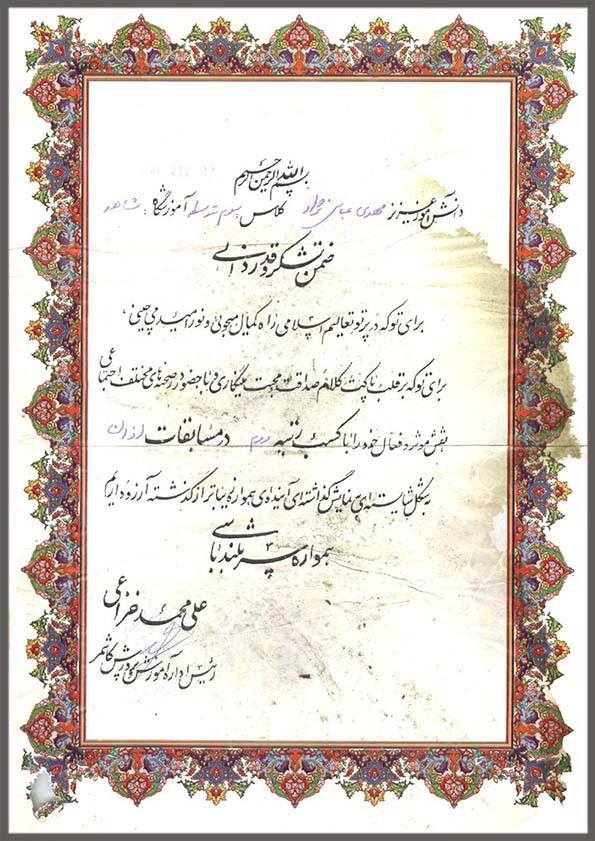 بسم الله الرحمن الرحیم
دانش آموز عزیز مهدی عباس نژاد کلاس سوم آموزشگاه: شاهد
ضمن تشکر و قدردانی
برای تو که در پرتو تعالیم اسلامی راه کمال میجوئی و نور امید می چینی،
برای تو که بر قلب پاکت کلام صداقت و محبت میگاری و با حضور در صحنه های مختلف اجتماعی
نقش موثر و فعال خود را با کسب رتبه دوم در مسابقات اذان
بشکل شایسته ای به نمایش گذاشته ای آینده ای همواره زیباتر از گذشته آرزو داریم
همواره سربلند باشی
علی محمد خزاعی
رئیس اداره آموزش و پرورش کاشمر